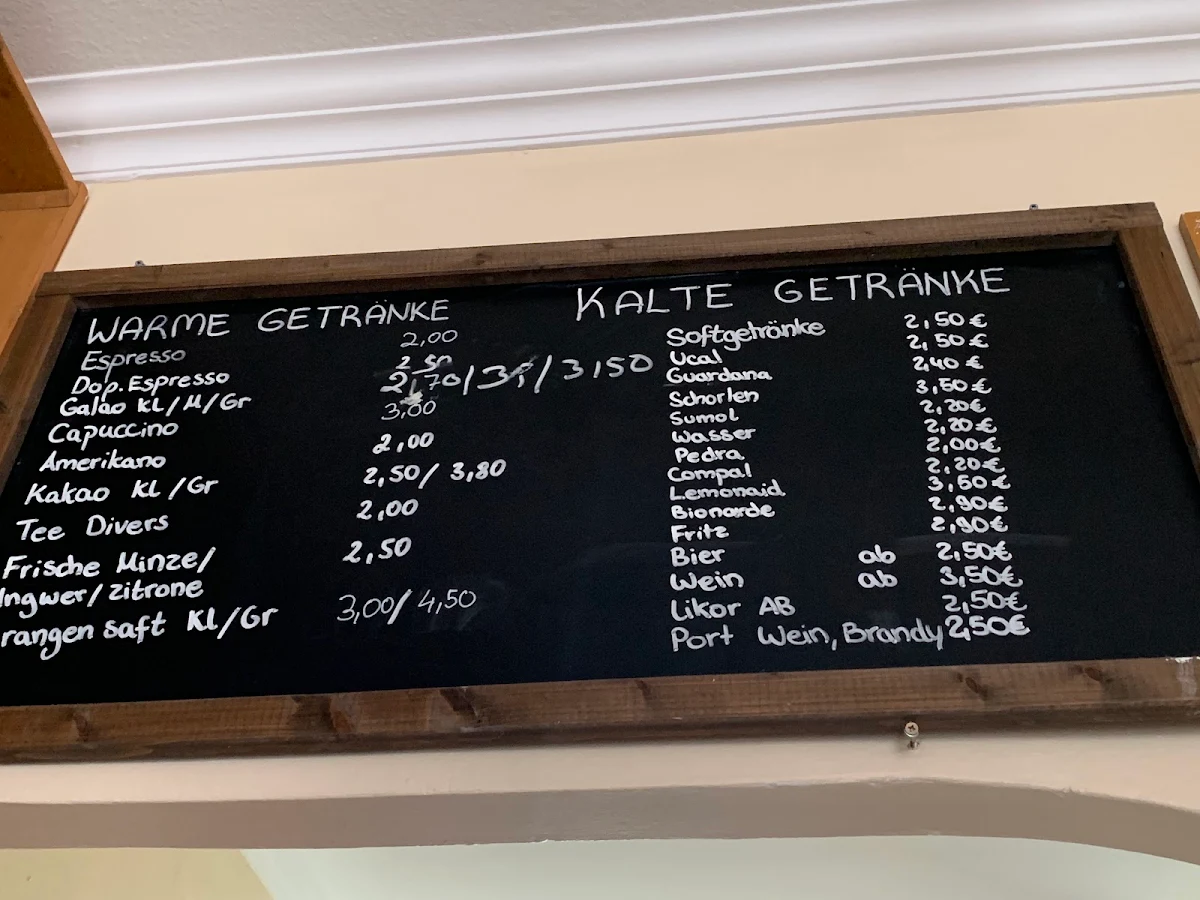 WARME GETRÄNKE
Espresso 2,00
Dop. Espresso 2,50
Galao KL/M/Gr 2,70/3,/3,50
Capuccino 3,00
Amerikano 2,00
Kakao KL/Gr 2,50/3,80
Tee Divers 2,00
Frische Minze/ 2,50
Ingwer/zitrone
rangen saft KL/Gr 3,00/4,50
KALTE GETRÄNKE
Softgetränke 2,50€
Ucal 2,50€
Guardana 2,40€
Schorlen 3,50€
Sumol 2,20€
Wasser 2,20€
Pedra 2,00€
Compal 2,20€
Lemonaid 3,50€
Bionarde 2,90€
Fritz 2,90€
Bier ab 2,50€
Wein ab 3,50€
Likor AB 2,50€
Port Wein, Brandy 2,50€